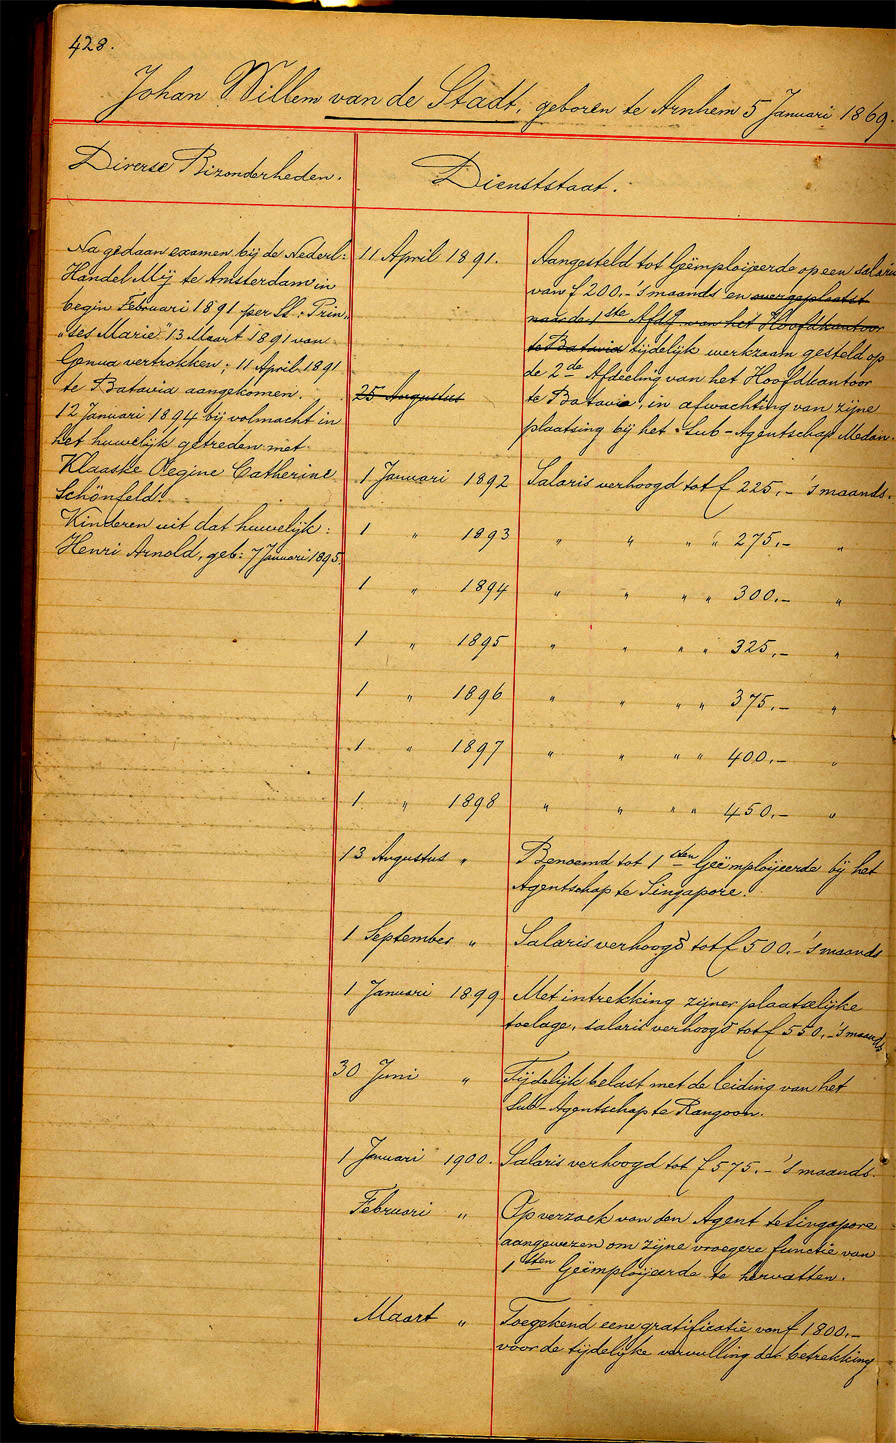 428.
Johan Willem van de Stadt, geboren te Arnhem 5 Januari 1869.
Diverse Bizonderheden.
Dienststaat.
Na gedaan examen bij de Nederl:
Handel Mij te Amsterdam in
begin Februari 1891 per SS: "Prin,
"ses Marie" 13 Maart 1891 van
Genua vertrokken; 11 April 1891
te Batavia aangekomen.
12 Januari 1894 bij volmacht in
het huwelijk getreden met
Klaaske Regine Catherine
Schönfeld.
Kinderen uit dat huwelijk:
Henri Arnold, geb: 7 Januari 1895.
11 April 1891. Aangesteld tot Geëmploijeerde op een salaris
van f 200.- 's maands en overgeplaatst
naar de 1ste Afdg. van het Hoofdkantoor
te Batavia tijdelijk werkzaam gesteld op
de 2de Afdeeling van het Hoofdkantoor
25 Augustus te Batavia, in afwachting van zijne
plaatsing bij het Sub-Agentschap Medan.
1 Januari 1892 Salaris verhoogd tot f 225.- 's maands.
1 " 1893 " " " " 275.- "
1 " 1894 " " " " 300.- "
1 " 1895 " " " " 325.- "
1 " 1896 " " " " 375.- "
1 " 1897 " " " " 400.- "
1 " 1898 " " " " 450.- "
13 Augustus " Benoemd tot 1sten Geëmploijeerde bij het
Agentschap te Singapore.
1 September " Salaris verhoogd tot f 500.- 's maands
1 Januari 1899 Met intrekking zijner plaatselijke
toelage, salaris verhoogd tot f 550.- 's maands
30 Juni " Tijdelijk belast met de leiding van het
Sub-Agentschap te Rangoon.
1 Januari 1900. Salaris verhoogd tot f 575.- 's maands.
Februari " Op verzoek van den Agent te Singapore
aangewezen om zijne vroegere functie van
1sten Geëmploijeerde te hervatten.
Maart " Toegekend eene gratificatie van f 1800.-
voor de tijdelijke vervulling der betrekking